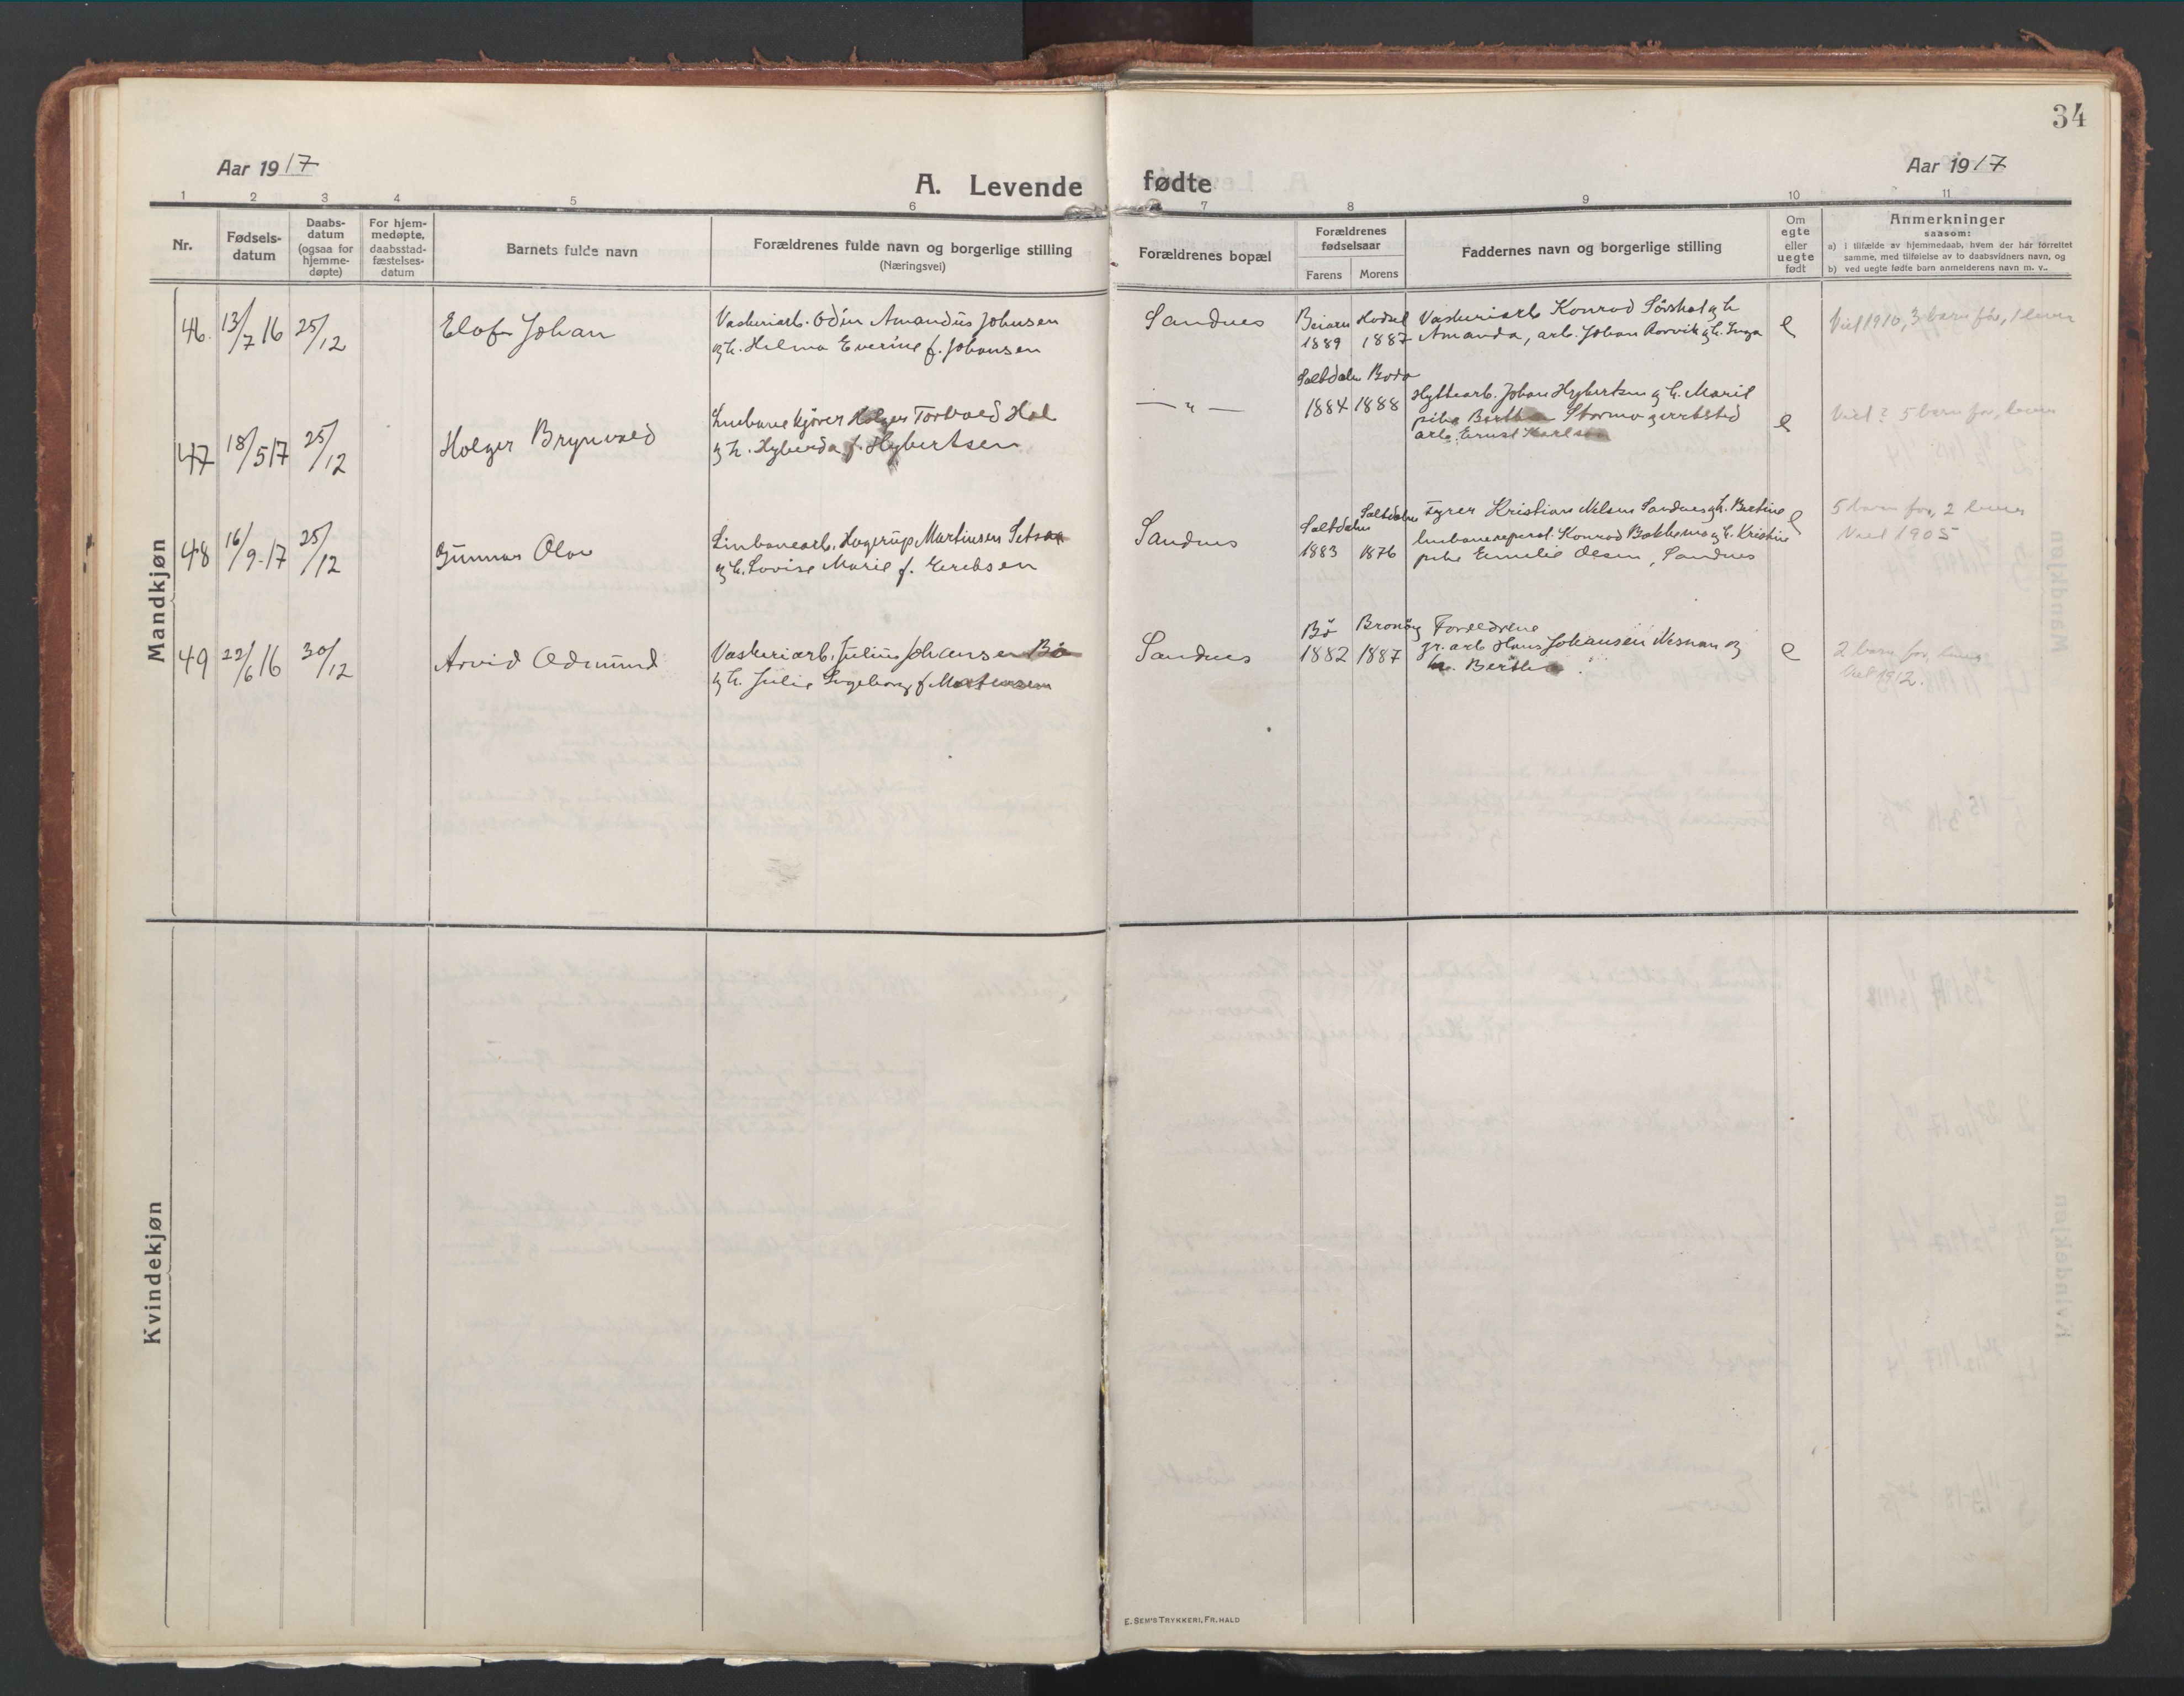 34
Aar 1917
Aar 1917
A. Levende fødte
1 2 3 4 5 6 7 8 9 10 11
Nr.
Fødsels-
datum
Daabs-
datum
(ogsaa for
hjemme-
døpte)
For hjem-
medøpte,
daabsstad-
fæstelses-
datum
Barnets fulde navn
Forældrenes fulde navn og borgerlige stilling
(Næringsvei)
Forældrenes bopæl
Forældrenes
fødselsaar
Farens Morens
Faddernes navn og borgerlige stilling
Om
egte
eller
uegte
født
Anmerkninger
saasom:
a) i tilfælde av hjemmedaab, hvem der har forrettet
samme, med tilføielse av to daabsvidners navn, og
b) ved uegte fødte barn anmelderens navn m. v..
Mandkjøn
46. 13/7 16 25/12
Elof Johan
Vaskeriarb. Odin Amandus Johnsen
og h. Helma Everine f. Johansen
Sandnes
Beiarn 1889
Hadsel 1887
Vaskeriarb Konrad Sörshal og h
Amanda, arb. Johan Rorvik og h. Inga
e
Viet 1910, 3 barn før, 1 lever
47 18/5 17 25/12
Holger Brynvald
Linbanekjører Holger Torvald Hal
og h. Hyberda f. Hybertsen
— " —
Saltdalen 1884
Bodø 1888
Hyttearb. Johan Hybertsen og h. Marit
pike Berth Stormo
arb. Ernst Karlsen
e
Viet? 5 barn før, lever
48 16/9-17 25/12
Gunnar Olav
Linbanearb. Hagerup Martinsen Setsaa
og h. Lovise Marie f. Eriksen
Sandnes
Saltdalen 1883
Saltdalen 1876
Fyrer Kristian Nilsen Sandnes og h. Bertine
linbanereparat. Konrad Bakkemo og h. Kristine
pike Emelie Olsen, Sandnes
e
5 barn før, 2 lever
Viet 1905
49 22/6 16 30/12
Arvid Odmund
Vaskeriarb. Julius Johansen Bø
og h. Julie Ingeborg f. Mortensen
Sandnes
Bö 1882
Brønöy 1887
Foreldrene
gr. arb Hans Johansen Nesnan og
h. Berthe
e
2 barn før, lever
Viet 1912.
Kvindekjøn
E. SEM'S TRYKKERI, FR. HALD